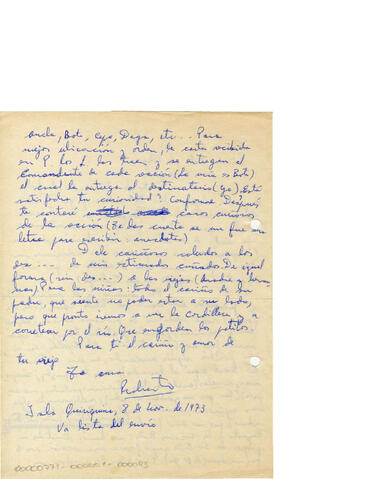 ancla, Bote, Ceja, Daga, etc... Para
mejor ubicación y orden, la carta recibida
en P. los L. las traen y se entregan al
Comandante de cada sección (la mía es Bote)
el cual la entrega al destinatario (yo). Está
satisfecha tu curiosidad? Conforme. Después
te contaré casos curiosos
de la sección (Te das cuenta se me fue una
letra para escribir anecdotas)
Dale cariñosos saludos a los
des... de mis estimados cuñados. De igual
forma (sin des...) a las viejas (madre y herma
nas). Para los niños: todo el cariño de su
padre, que siente no poder estar a su lado,
pero que pronto iremos a ver la Cordillera P. a
corretear por el río. Que engorden los patitos.
Para ti el cariño y amor de
tu viejo
Te ama
Roberto
Isla Quiriquina, 8 de Nov. de 1973
Va lista del envío
00000771-000009-000003